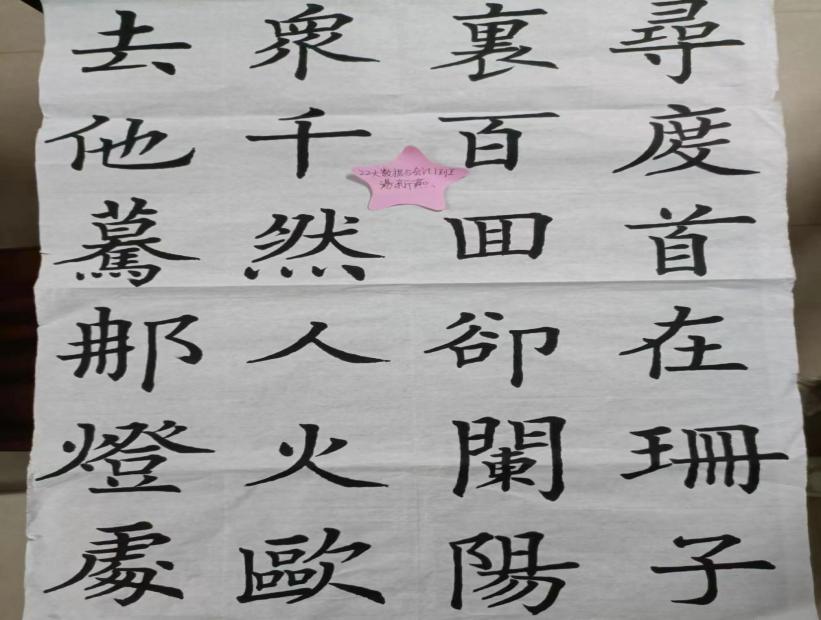 去衆裏尋
他千百度
驀然囬首
那人卻在
燈火闌珊
處歐陽子
22大数据与会计